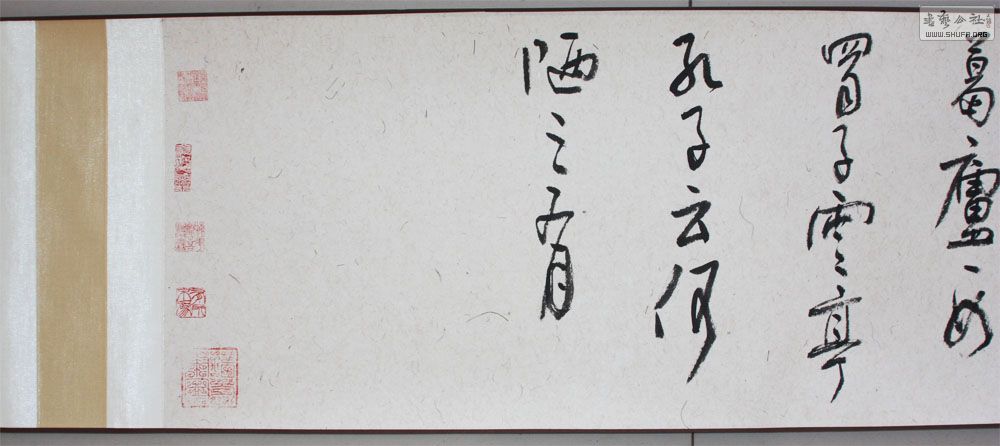 葛廬西
蜀子雲亭
孔子云何
陋之有
书艺公社
WWW.SHUFA.ORG